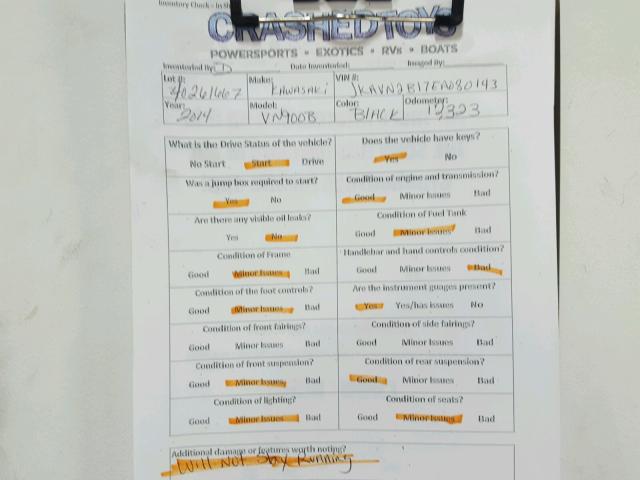 Inventory Check - In Sh
CRASHEDTOYS
POWERSPORTS • EXOTICS • RVs • BOATS
Inventoried By: D Date Inventoried: Imaged By:
Lot #: Make: KAWASAKI VIN #: JKAVN2B17EA080143
Year: 2014 Model: VN900B Color: BLACK Odometer: 12323
What is the Drive Status of the vehicle? Does the vehicle have keys?
No Start Start Drive Yes No
Was a jump box required to start? Condition of engine and transmission?
Yes No Good Minor Issues Bad
Are there any visible oil leaks? Condition of Fuel Tank
Yes No Good Minor Issues Bad
Condition of Frame Handlebar and hand controls condition?
Good Minor Issues Bad Good Minor Issues Bad
Condition of the foot controls? Are the instrument guages present?
Good Minor Issues Bad Yes Yes/has issues No
Condition of front fairings? Condition of side fairings?
Good Minor Issues Bad Good Minor Issues Bad
Condition of front suspension? Condition of rear suspension?
Good Minor Issues Bad Good Minor Issues Bad
Condition of lighting? Condition of seats?
Good Minor Issues Bad Good Minor Issues Bad
Additional damage or features worth noting?
Will Not Stay Running